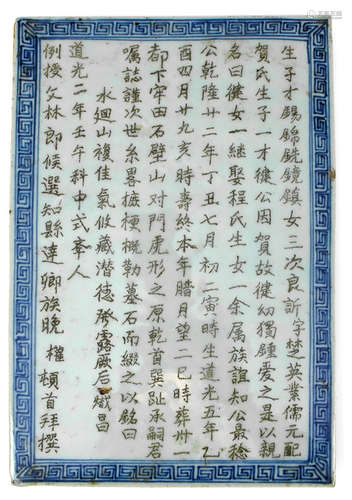 生子才錫錦銑鏡鎮女三次良訢字楚英業儒元配
賀氏生子一才健公因賀故健幼獨鍾愛之是以親
名曰健女一繼娶程氏生女一余属族誼知公最稔
公乾隆廿二年丁丑七月初二寅時生道光五年乙
酉四月廿九亥時壽終本年腊月望二巳時葬卅一
都下牢田石壁山对門虎形之原乾首巽趾承嗣君
嘱誌謹次世系畧撼梗概勒墓石而綴之以銘曰
水迴山複佳氣攸藏潛德發露厥后熾昌
道光二年壬午科中式舉人
例授文林郎候選知縣達卿族晚 權頓首拜撰